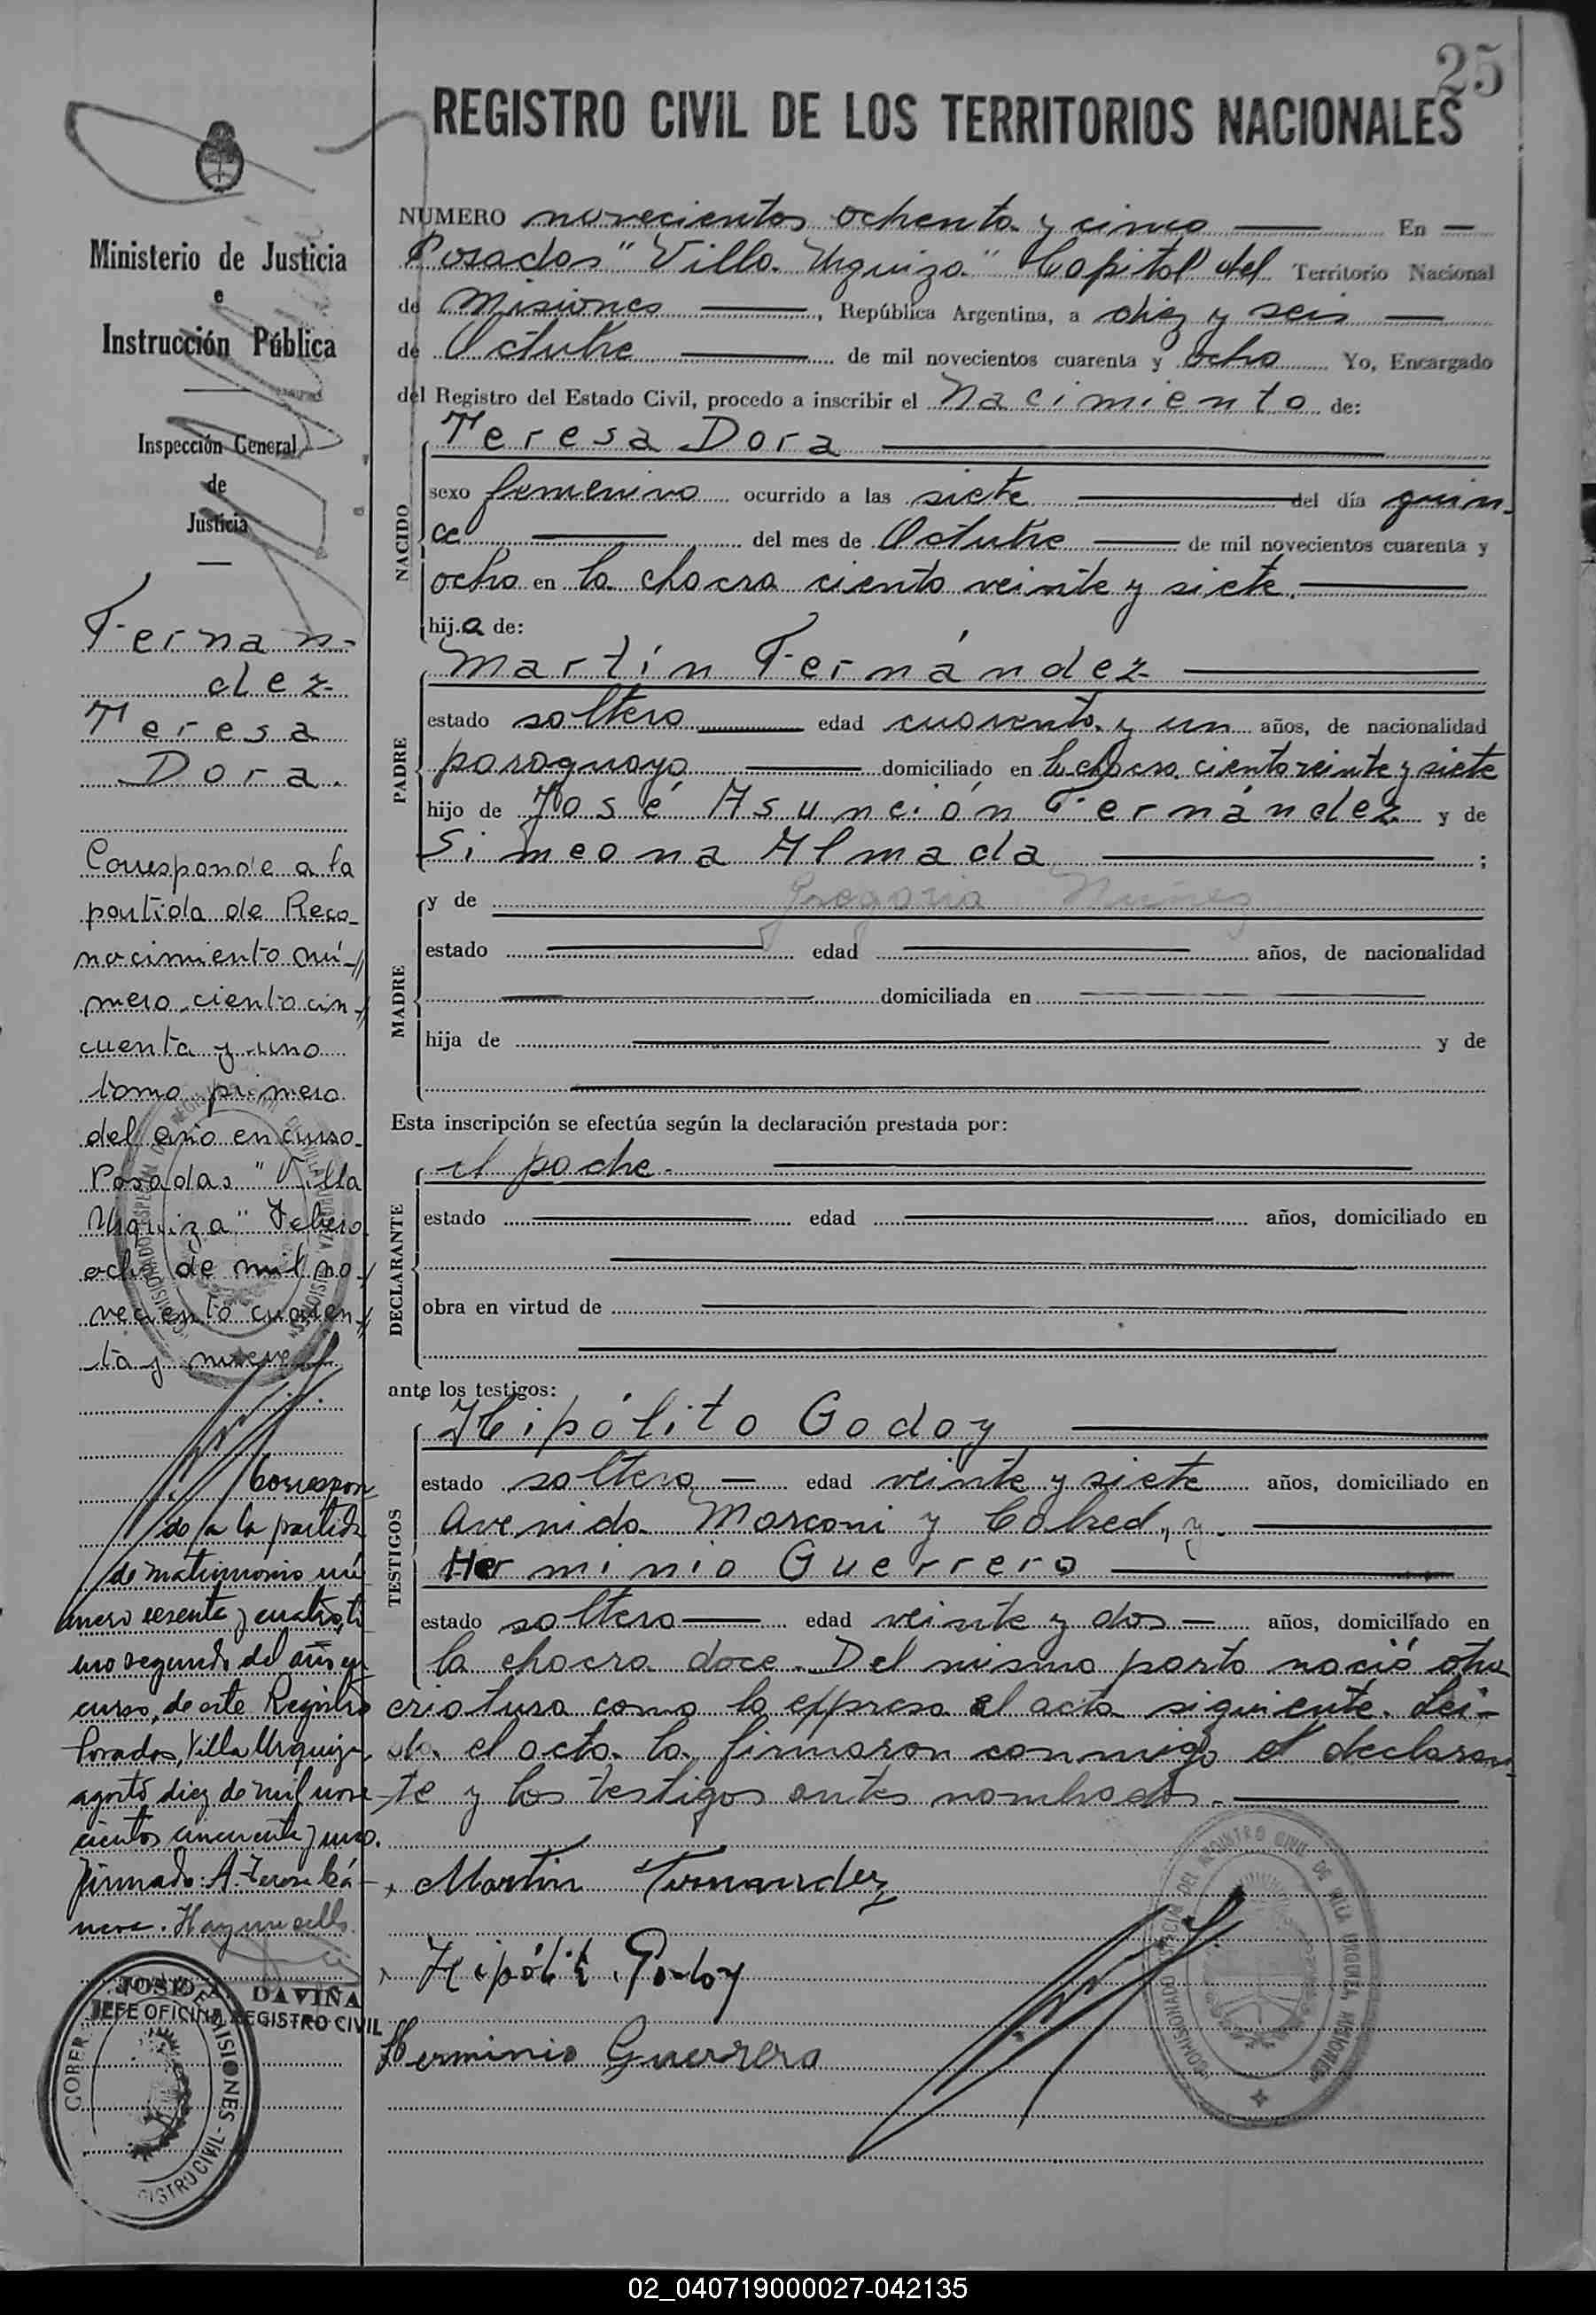 25
REGISTRO CIVIL DE LOS TERRITORIOS NACIONALES
Ministerio de Justicia
e
Instrucción Pública
Inspección General
de
Justicia
Fernan-
dez
Teresa
Dora.
Corresponde a la
partida de Reco-
nocimiento nú-//
mero ciento cin-//
cuenta y uno
tomo primero
del año en curso.
Posadas "Villa
Urquiza" Febrero
ocho de mil no-//
veciento cuaren-//
ta y nueve
Correspon
de a la partida
de matrimonio nú
mero sesenta y cuatro, to
mo segundo del año en
curso, de este Registro
Posadas, Villa Urquiza,
agosto diez de mil nove
cientos cincuenta y uno.
Firmado: A.
JOSE A. DAVIÑA
JEFE OFICINA REGISTRO CIVIL
NUMERO novecientos ochenta y cinco En
Posadas "Villa Urquiza" Capital del Territorio Nacional
de Misiones, República Argentina, a diez y seis
de Octubre de mil novecientos cuarenta y ocho Yo, Encargado
del Registro del Estado Civil, procedo a inscribir el Nacimiento de:
NACIDO
Teresa Dora
sexo femenino ocurrido a las siete del día quin-
ce del mes de Octubre de mil novecientos cuarenta y
ocho en la chacra ciento veinte y siete.
hija de:
PADRE
Martín Fernández
estado soltero edad cuarenta y un años, de nacionalidad
paraguayo domiciliado en la chacra ciento veinte y siete
hijo de José Asunción Fernández y de
Simeona Almada ;
MADRE
y de Gregoria Nuñez
estado edad años, de nacionalidad
domiciliada en
hija de y de
Esta inscripción se efectúa según la declaración prestada por:
DECLARANTE
el padre.
estado edad años, domiciliado en
obra en virtud de
ante los testigos:
TESTIGOS
Hipólito Godoy
estado soltero edad veinte y siete años, domiciliado en
Avenida Marconi y Cabred, y
Herminio Guerrero
estado soltero edad veinte y dos años, domiciliado en
la chacra doce. Del mismo parto nació otra
criatura como lo expresa el acta siguiente. Leí-
da el acta la firmaron conmigo el declaran-
te y los testigos antes nombrados.
Martin Fernandez
Hipólito Godoy
Herminio Guerrero
COMISIONADO ESPECIAL DEL REGISTRO CIVIL DE VILLA URQUIZA MISIONES
02_040719000027-042135